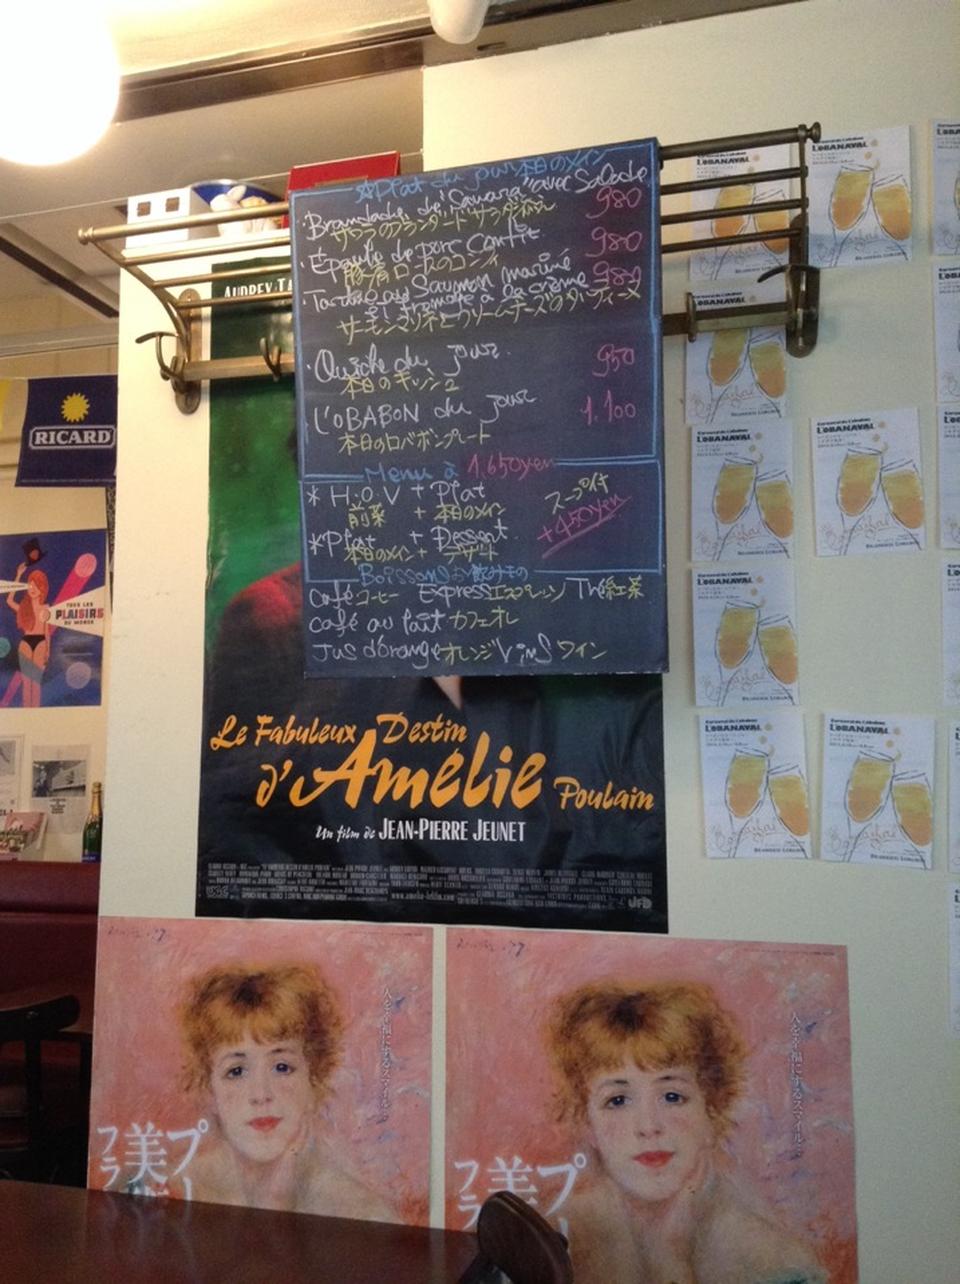 *Plat du jour 本日のメイン
・Brandade de "Sawara" avec Salade
サワラのブランダード サラダ添え 980
・Épaule de porc Confit
豚肩ロースのコンフィ 980
・Tartine au Saumon mariné 980
et fromage à la crème
サーモンマリネとクリームチーズのタルティーヌ
・Quiche du jour. 950
本日のキッシュ
L'OBABON du jour 1.100
本日のロバボンプレート
Menu à 1.650yen
* H.O.V + Plat
前菜 + 本日のメイン
スープ付
+450yen
*Plat + Dessert.
本日のメイン + デザート
Boissons お飲みもの
Café コーヒー Express エスプレッソ Thé 紅茶
café au lait カフェオレ
Jus d'orange オレンジ Vins ワイン
RICARD
TOUS LES
PLAISIRS
DU MONDE
AUDREY TA
Le Fabuleux Destin
d'Amélie Poulain
Un film de JEAN-PIERRE JEUNET
UGC
L'OBANAVAL
L'OBANAVAL
L'OBANAVAL
L'OBANAVAL
L'OBANAVAL
L'OBANAVAL
L'OBANAVAL
L'OBANAVAL
人を幸福にするスマイル。
プー
美
フラ
人を幸福にするスマイル。
プー
美
フラ